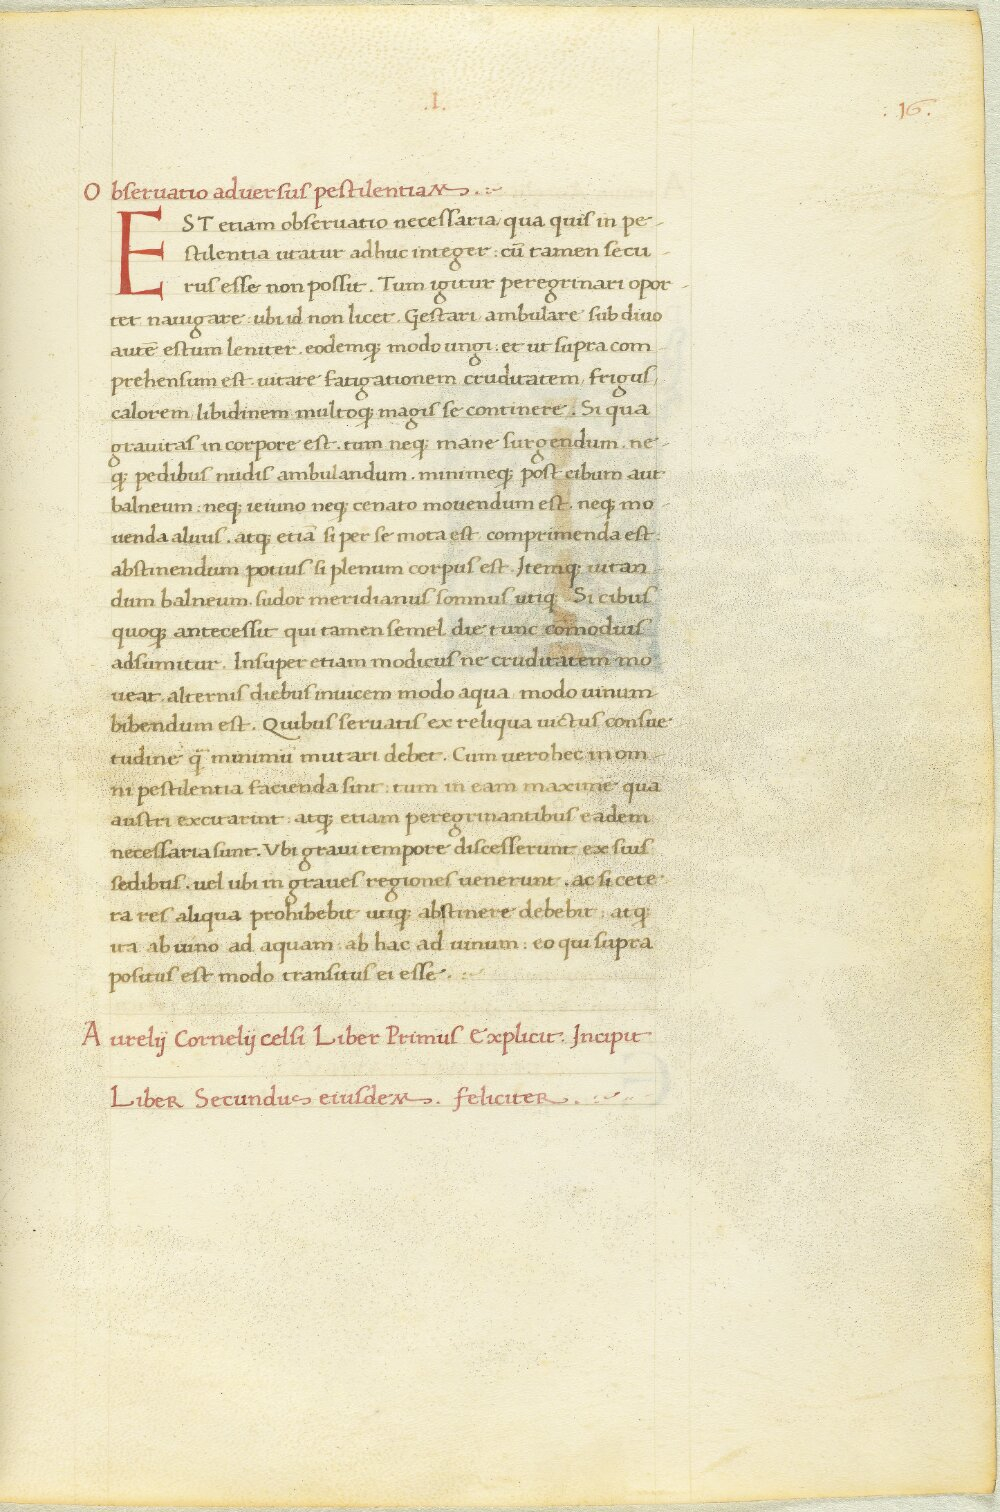 .I.
.16.
Obseruatio aduersus pestilentiam.
EST etiam obseruatio necessaria, qua quis in pe-
stilentia utatur adhuc integer: cū tamen secu-
rus esse non possit. Tum igitur peregrinari opor-
tet nauigare: ubi id non licet. Gestari ambulare sub diuo
autē estum leniter. eodemq; modo ungi: et ut supra com-
prehensum est. uitare fatigationem cruditatem, frigus,
calorem, libidinem multoq; magis se continere. Si qua
grauitas in corpore est. tum neq; mane surgendum. ne-
q; pedibus nudis ambulandum. minimeq; post cibum aut
balneum: neq; ieiuno neq; cenato mouendum est. neq; mo-
uenda aluus. atq; etiā si per se mota est comprimenda est:
abstinendum potius si plenum corpus est. Itemq; uitan-
dum balneum. sudor meridianus somnus utiq; Si cibus
quoq; antecessit qui tamen semel die tunc cōmodius
adsumitur. Insuper etiam modicus ne cruditatem mo-
ueat. alternis diebus inuicem modo aqua modo uinum
bibendum est. Quibus seruatis ex reliqua uictus consue-
tudine q̄ minimū mutari debet. Cum uero hec in om-
ni pestilentia facienda sint: tum in eam maxime qua
austri excitarint: atq; etiam peregrinantibus eadem
necessaria sunt. Vbi graui tempore discesserunt ex suis
sedibus. uel ubi in graues regiones uenerunt. ac si cete-
ra res aliqua prohibebit utiq; abstinere debebit: atq;
ita ab uino ad aquam: ab hac ad uinum: eo qui supra
positus est modo transitus ei esse.
Aurelij Cornelij celsi Liber Primus Explicit. Incipit
Liber Secundus eiusdem. feliciter.